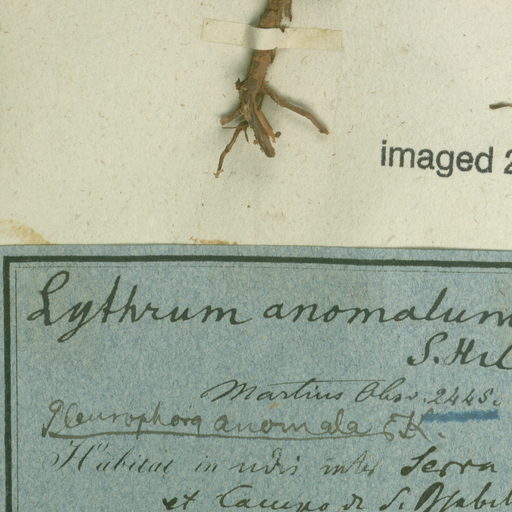 imaged 2
Lythrum anomalum
S. Hil
Martius Obsv. 2445.
Pleurophora anomala K.
Habitat in udis inter Serra
et Campo de S. Isabel